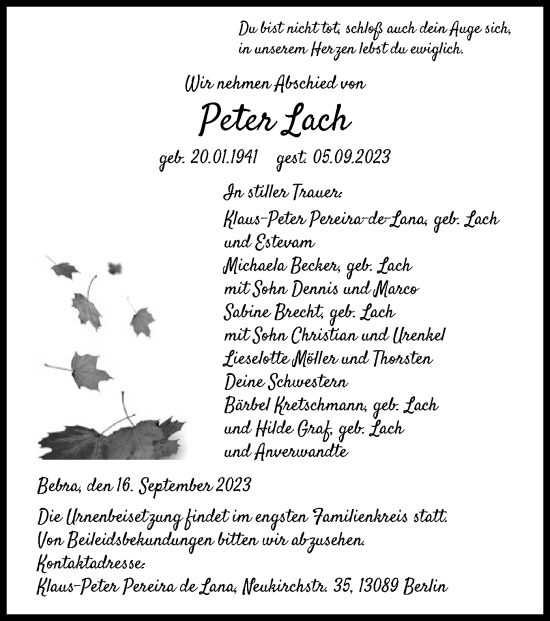 Du bist nicht tot, schloß auch dein Auge sich,
in unserem Herzen lebst du ewiglich.
Wir nehmen Abschied von
Peter Lach
geb. 20.01.1941 gest. 05.09.2023
In stiller Trauer:
Klaus-Peter Pereira-de-Lana, geb. Lach
und Estevam
Michaela Becker, geb. Lach
mit Sohn Dennis und Marco
Sabine Brecht, geb. Lach
mit Sohn Christian und Urenkel
Lieselotte Möller und Thorsten
Deine Schwestern
Bärbel Kretschmann, geb. Lach
und Hilde Graf, geb. Lach
und Anverwandte
Bebra, den 16. September 2023
Die Urnenbeisetzung findet im engsten Familienkreis statt.
Von Beileidsbekundungen bitten wir abzusehen.
Kontaktadresse:
Klaus-Peter Pereira de Lana, Neukirchstr. 35, 13089 Berlin